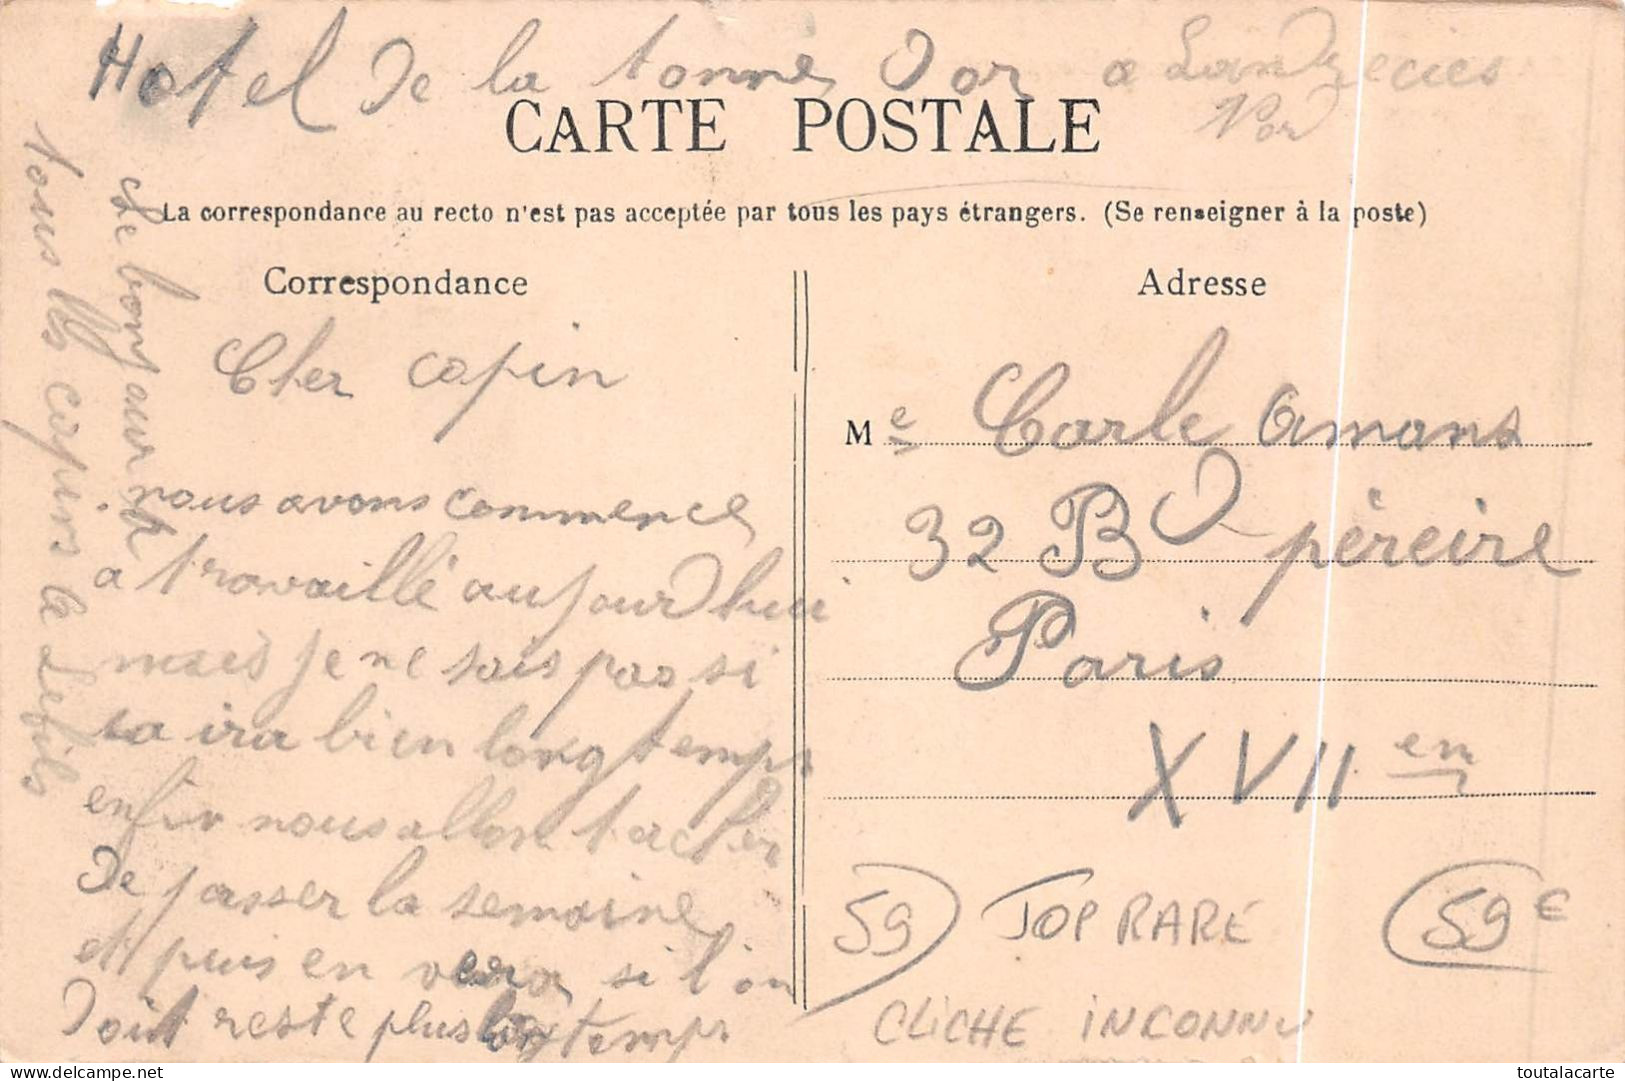 Hotel De la tonne Dor a Landrecies
Nor
CARTE POSTALE
La correspondance au recto n'est pas acceptée par tous les pays étrangers. (Se renseigner à la poste)
Correspondance
Adresse
Cher copin
nous avons commence
a travaillé aujourdhui
mais je ne sais pas si
sa ira bien longtemps
enfin nous allon tacher
De passer la semaine
et puis en vera si l'on
Doit reste plus longtemps
le bonjour a
tous les copins
Me Carle Amans
32 BD péreire
Paris
XVII em
59 TOP RARE 59 €
CLICHE INCONNU
toutalacarte